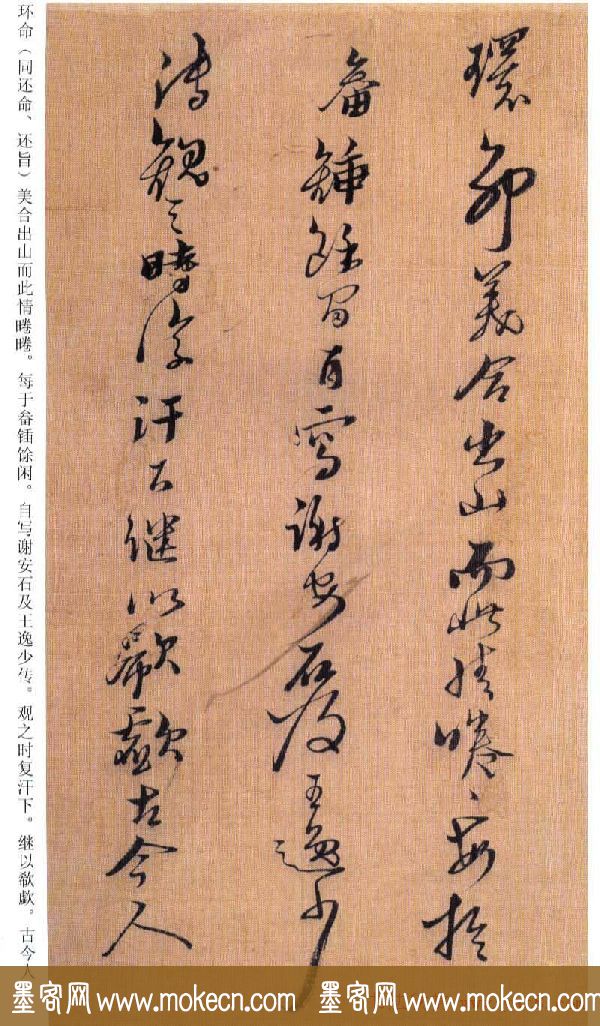 環命美合出山而此情睠〻每於
畚鍤餘閒自寫謝安石及王逸少
傳觀之時復汗下繼以欷歔古今人
环命（同还命、还旨）美合出山而此情睠睠。每于畚锸馀闲。自写谢安石及王逸少传。观之时复汗下。继以欷歔。古今人
墨客网 www.mokecn.com 墨客网 www.mokecn.com